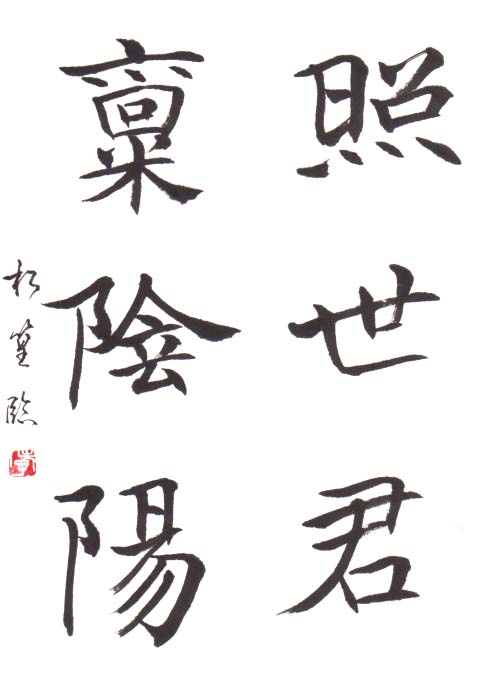 照世君
稟陰陽
松 臨